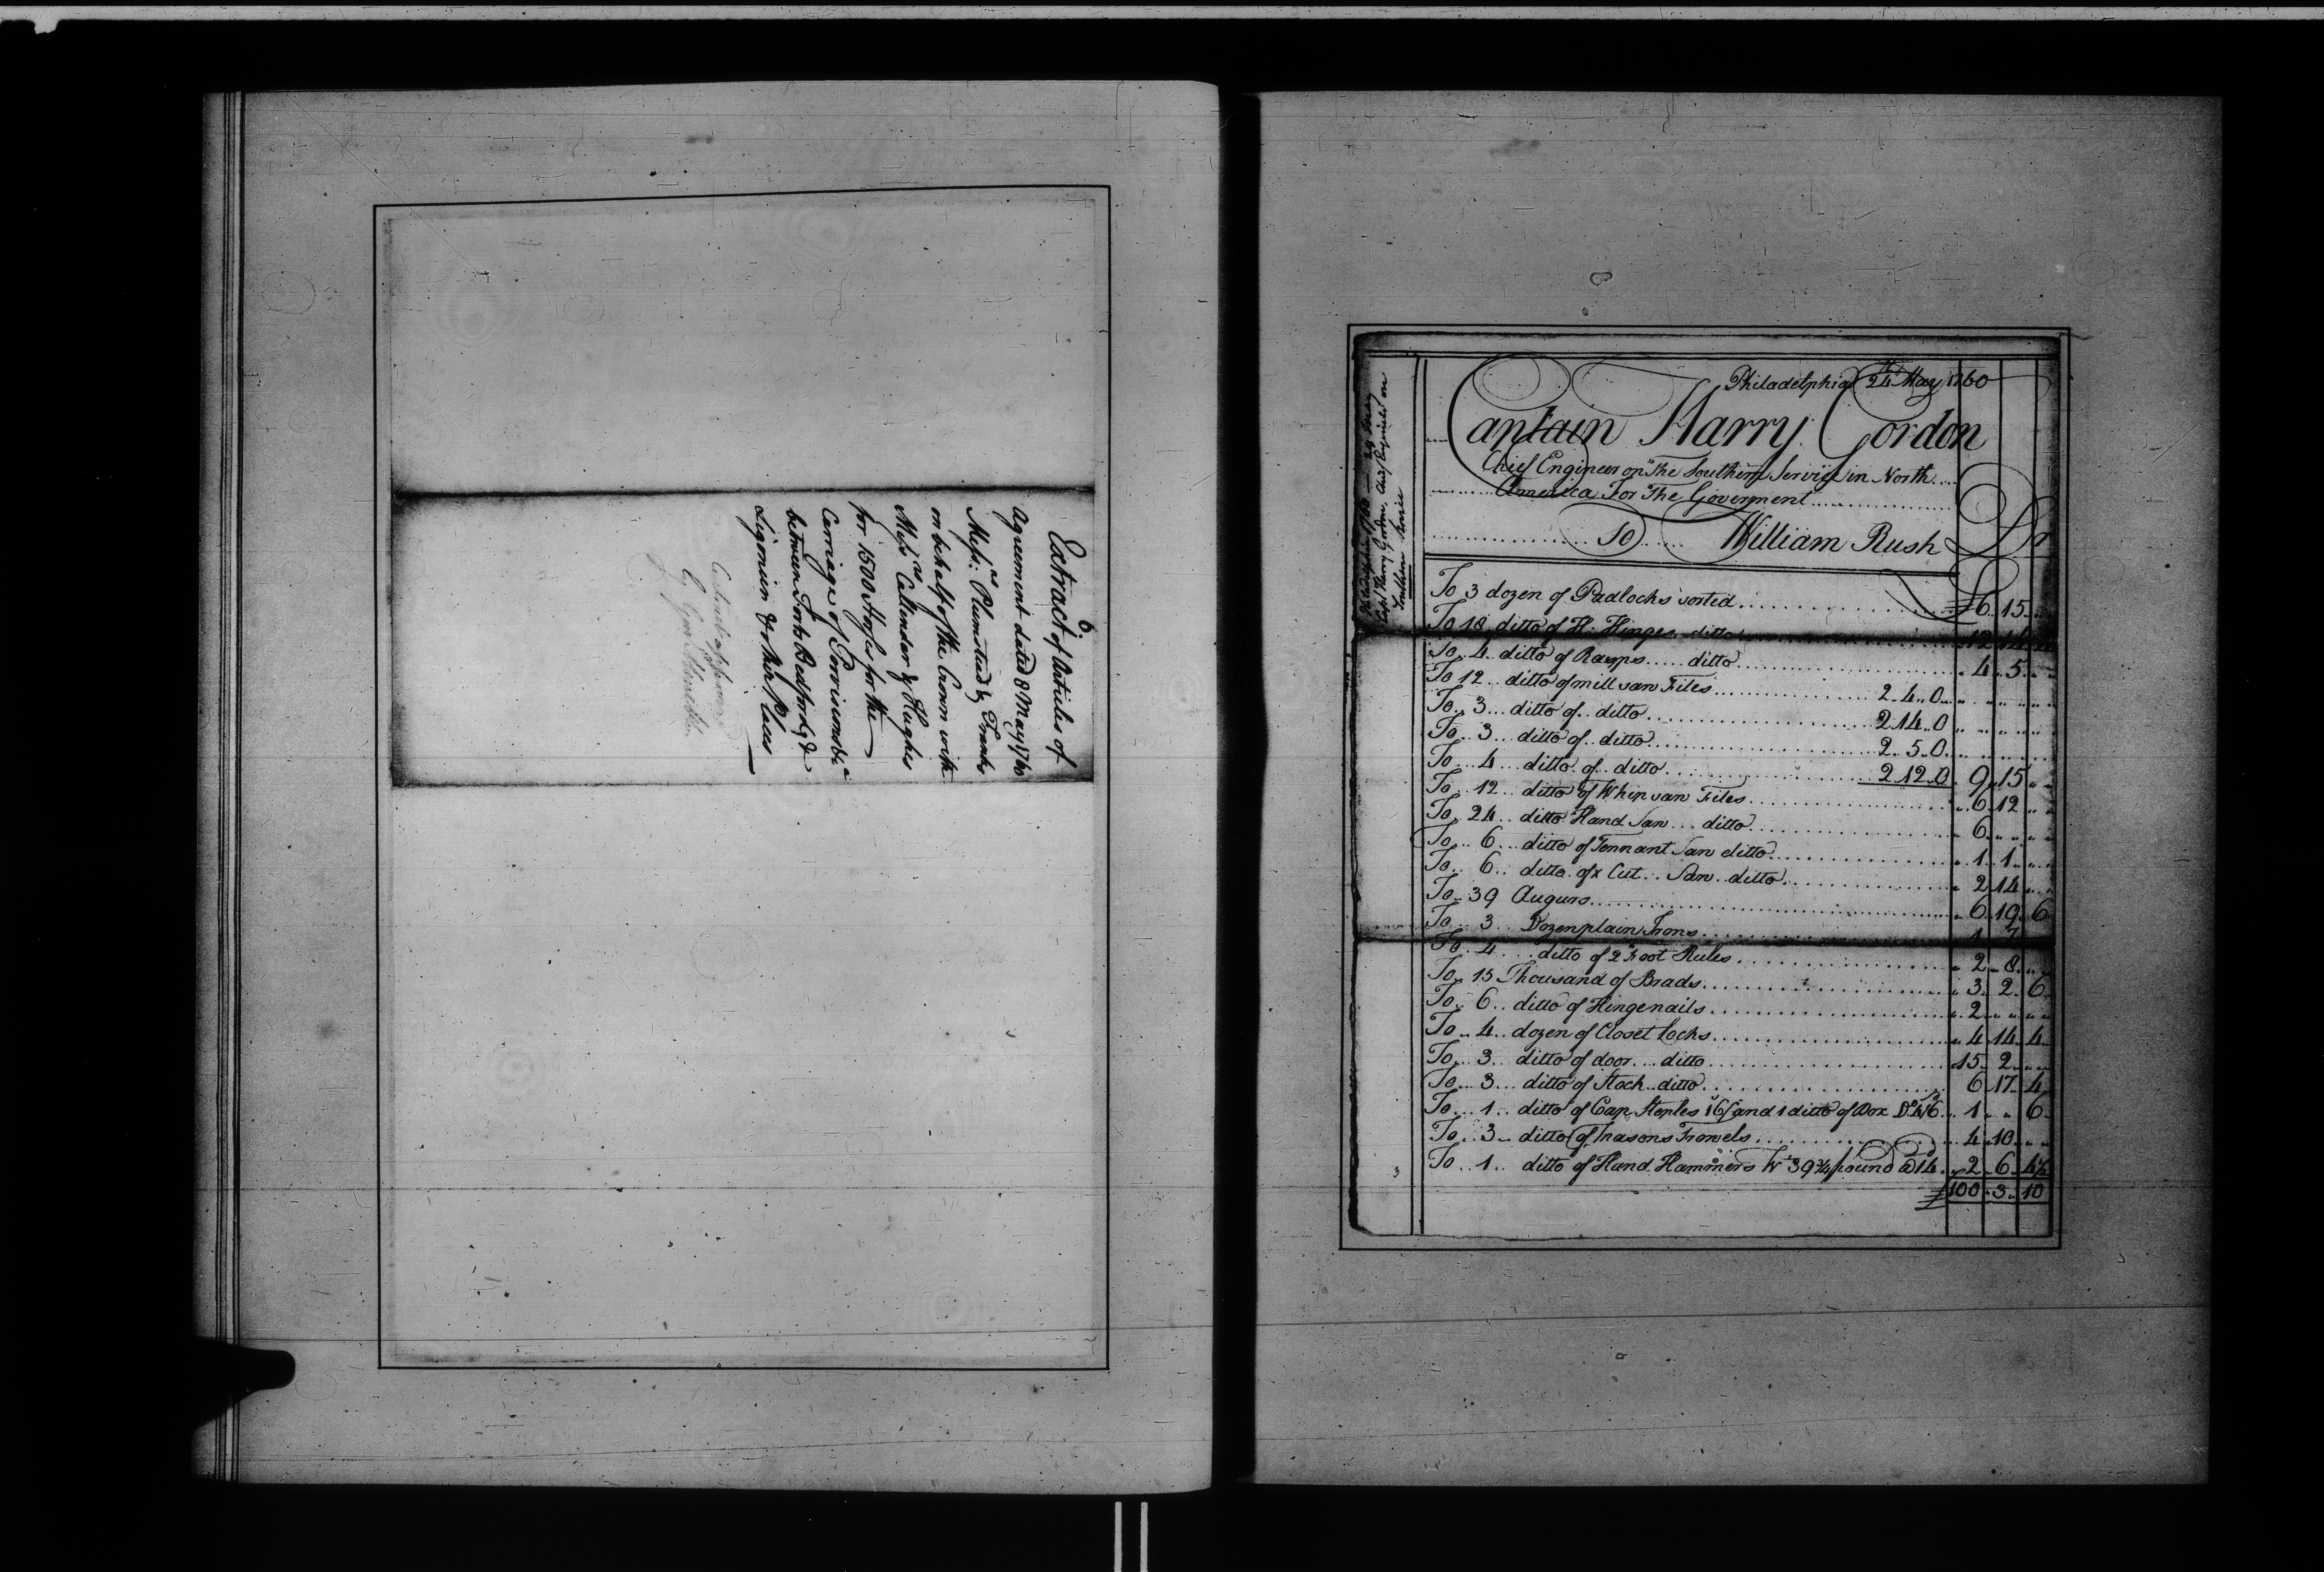 6
Extract of Articles of
Agreement dated 8 May 1760
Messrs: Plumsted & Franks
on behalf of the Crown with
Messrs Callender & Hughes
for 1500 Horses for the
Carriage of Provisions &ca
between Forts Bedford &
Ligonier & other Places
Philadelphia 24th May 1760
Captain Harry Gordon
Chief Engineer on The Southern Service in North
America For The Goverment
To William Rush Dr
To 3 dozen of Padlocks sorted £6 15
To 18 ditto of H: Hinges ditto 12 14
To 4 ditto of Rasps ditto 4 5
To 12 ditto of mill saw Files 2 4 0
To 3 ditto of ditto 2 14 0
To 3 ditto of ditto 2 5 0
To 4 ditto of ditto 2 12 0 9 15
To 12 ditto of Whip saw Files 6 12
To 24 ditto Hand Saw ditto 6
To 6 ditto of Tennant Saw ditto 1 1
To 6 ditto of x Cut Saw ditto 2 14
To 39 Augurs 6 19 6
To 3 Dozen plain Irons 1 7
To 4 ditto of 2 Foot Rules 2 8
To 15 Thousand of Brads 3 2 6
To 6 ditto of Hinge nails 2
To 4 dozen of Closet Locks 4 14 4
To 3 ditto of door ditto 15 2
To 3 ditto of Stock ditto 6 17 4
To 1 ditto of Cap Steples 16/ and 1 ditto of Box Do 4/6 1 6
To 3 ditto of Masons Trowels 4 10
To 1 ditto of Hand Hammers Wt 39 3/4 pound @ 14d 2 6 4½
£100 3 10
Capt Harry Gordon, Chief Engineer on
Southern Service
3